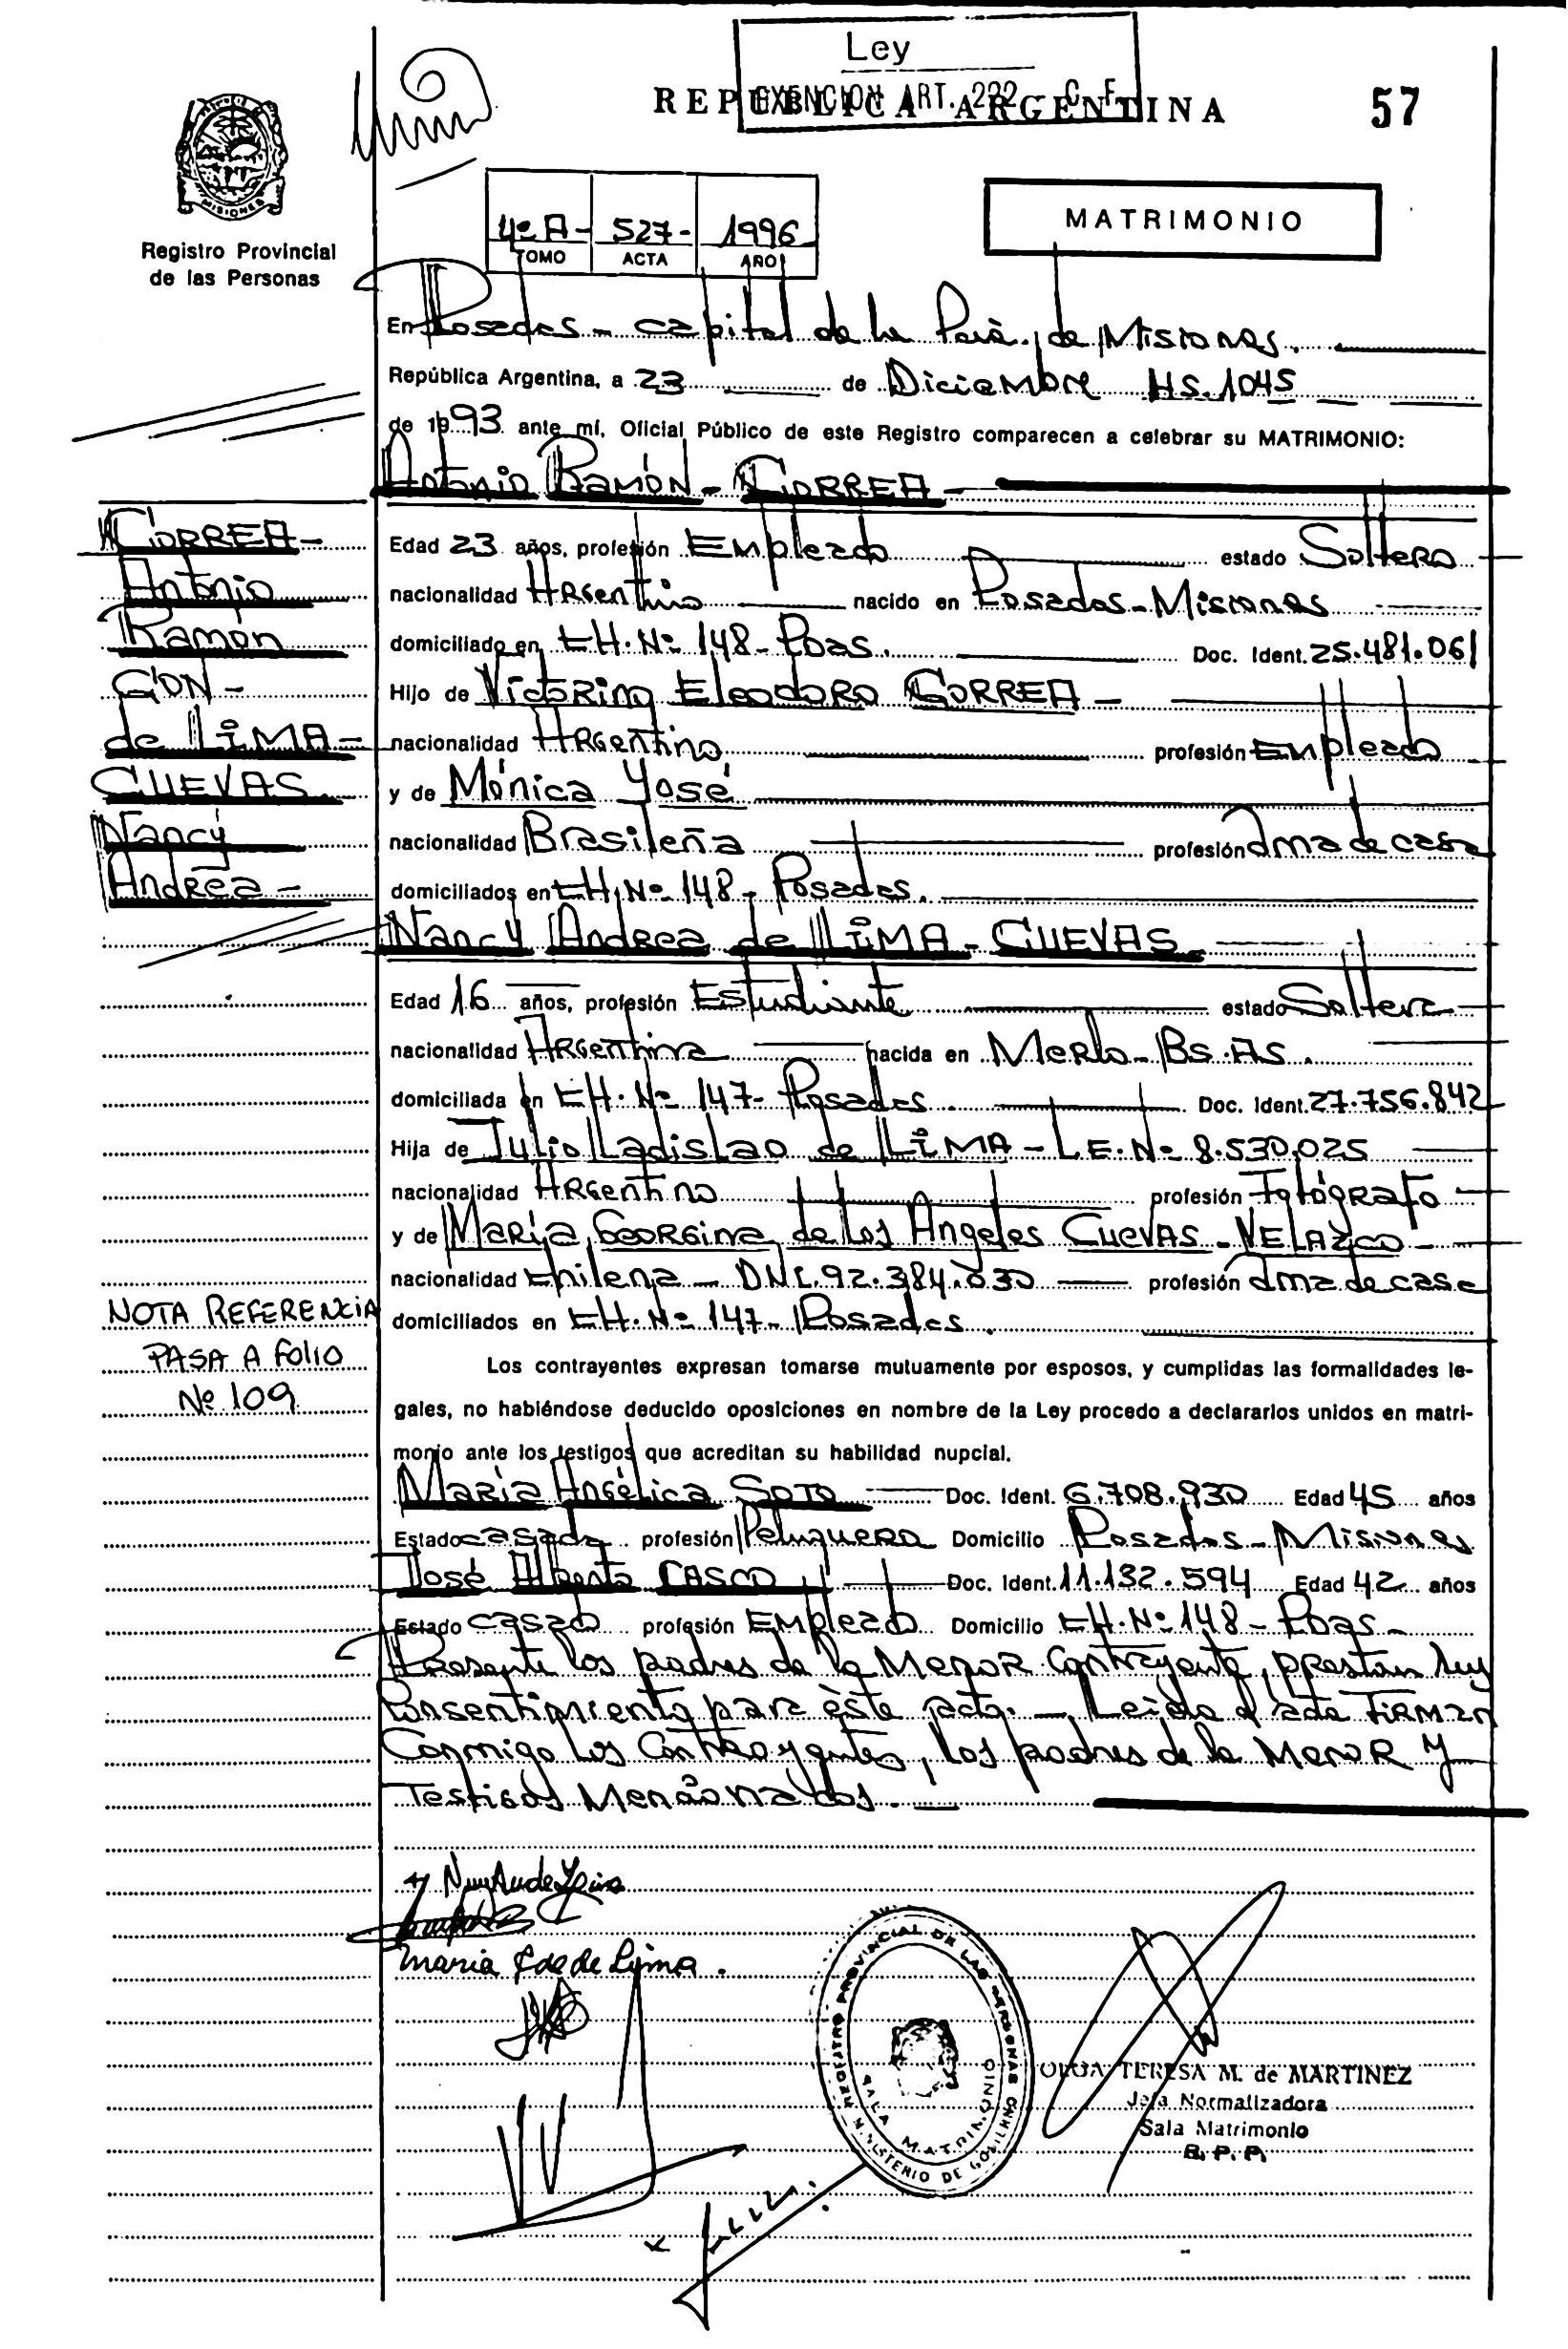 Ley
EXENCION ART. 292 C. F.
REPUBLICA ARGENTINA
57
MISIONES
Registro Provincial
de las Personas
4º A - 527 - 1996
TOMO ACTA AÑO
MATRIMONIO
En Posadas - capital de la Pcia. de Misiones.
República Argentina, a 23 de Diciembre HS. 1045
de 1993 ante mí, Oficial Público de este Registro comparecen a celebrar su MATRIMONIO:
Antonio Ramón - CORREA -
CORREA -
Antonio
Ramon
CON -
de LIMA -
CUEVAS
Nancy
Andrea -
Edad 23 años, profesión Empleado estado Soltero
nacionalidad Argentino nacido en Posadas - Misiones
domiciliado en CH. Nº 148 - Pdas. Doc. Ident. 25.481.061
Hijo de Victorino Eleodoro CORREA -
nacionalidad Argentino profesión Empleado
y de Mónica José
nacionalidad Brasileña profesión Ama de casa
domiciliados en CH. Nº 148 - Posadas.
Nancy Andrea de LIMA - CUEVAS
Edad 16 años, profesión Estudiante estado Soltera
nacionalidad Argentina nacida en Merlo - Bs. As.
domiciliada en CH. Nº 147 - Posadas. Doc. Ident. 27.756.842
Hija de Julio Ladislao de LIMA - L.E. Nº 8.530.025
nacionalidad Argentino profesión Fotógrafo
y de María Georgina de los Angeles Cuevas - VELAZCO -
nacionalidad Chilena - DNI. 92.384.030 profesión Ama de casa
domiciliados en CH. Nº 147 - Posadas.
NOTA REFERENCIA
PASA A folio
Nº 109
Los contrayentes expresan tomarse mutuamente por esposos, y cumplidas las formalidades le-
gales, no habiéndose deducido oposiciones en nombre de la Ley procedo a declararlos unidos en matri-
monio ante los testigos que acreditan su habilidad nupcial.
María Angélica SOTO Doc. Ident. 6.708.930 Edad 45 años
Estado casada profesión Peluquera Domicilio Posadas - Misiones
José Alberto CASCO Doc. Ident. 11.132.594 Edad 42 años
Estado casado profesión Empleado Domicilio CH. Nº 148 - Pdas -
Presente los padres de la Menor Contrayente, prestan su
Consentimiento para èste acto. - Leida el acta FIRMAN
Conmigo los Contrayentes, los padres de la Menor y
Testigos Mencionados. -
Maria de de Lima.
REGISTRO PROVINCIAL DE LAS PERSONAS
MINISTERIO DE GOBIERNO
SALA MATRIMONIO
OLGA TERESA M. de MARTINEZ
Jefa Normalizadora
Sala Matrimonio
R. P. P.